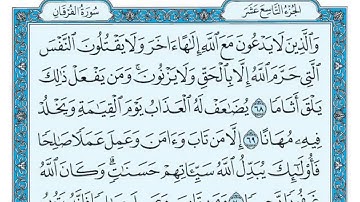 الجزء التاسع عشر
سورة الفرقان
وَالَّذِينَ لَا يَدْعُونَ مَعَ اللَّهِ إِلَٰهًا ءَاخَرَ وَلَا يَقْتُلُونَ النَّفْسَ
الَّتِي حَرَّمَ اللَّهُ إِلَّا بِالْحَقِّ وَلَا يَزْنُونَ ۚ وَمَن يَفْعَلْ ذَٰلِكَ
يَلْقَ أَثَامًا ٦٨ يُضَٰعَفْ لَهُ الْعَذَابُ يَوْمَ الْقِيَٰمَةِ وَيَخْلُدْ
فِيهِ مُهَانًا ٦٩ إِلَّا مَن تَابَ وَءَامَنَ وَعَمِلَ عَمَلًا صَٰلِحًا
فَأُو۟لَٰٓئِكَ يُبَدِّلُ اللَّهُ سَيِّـَٔاتِهِمْ حَسَنَٰتٍ ۗ وَكَانَ اللَّهُ